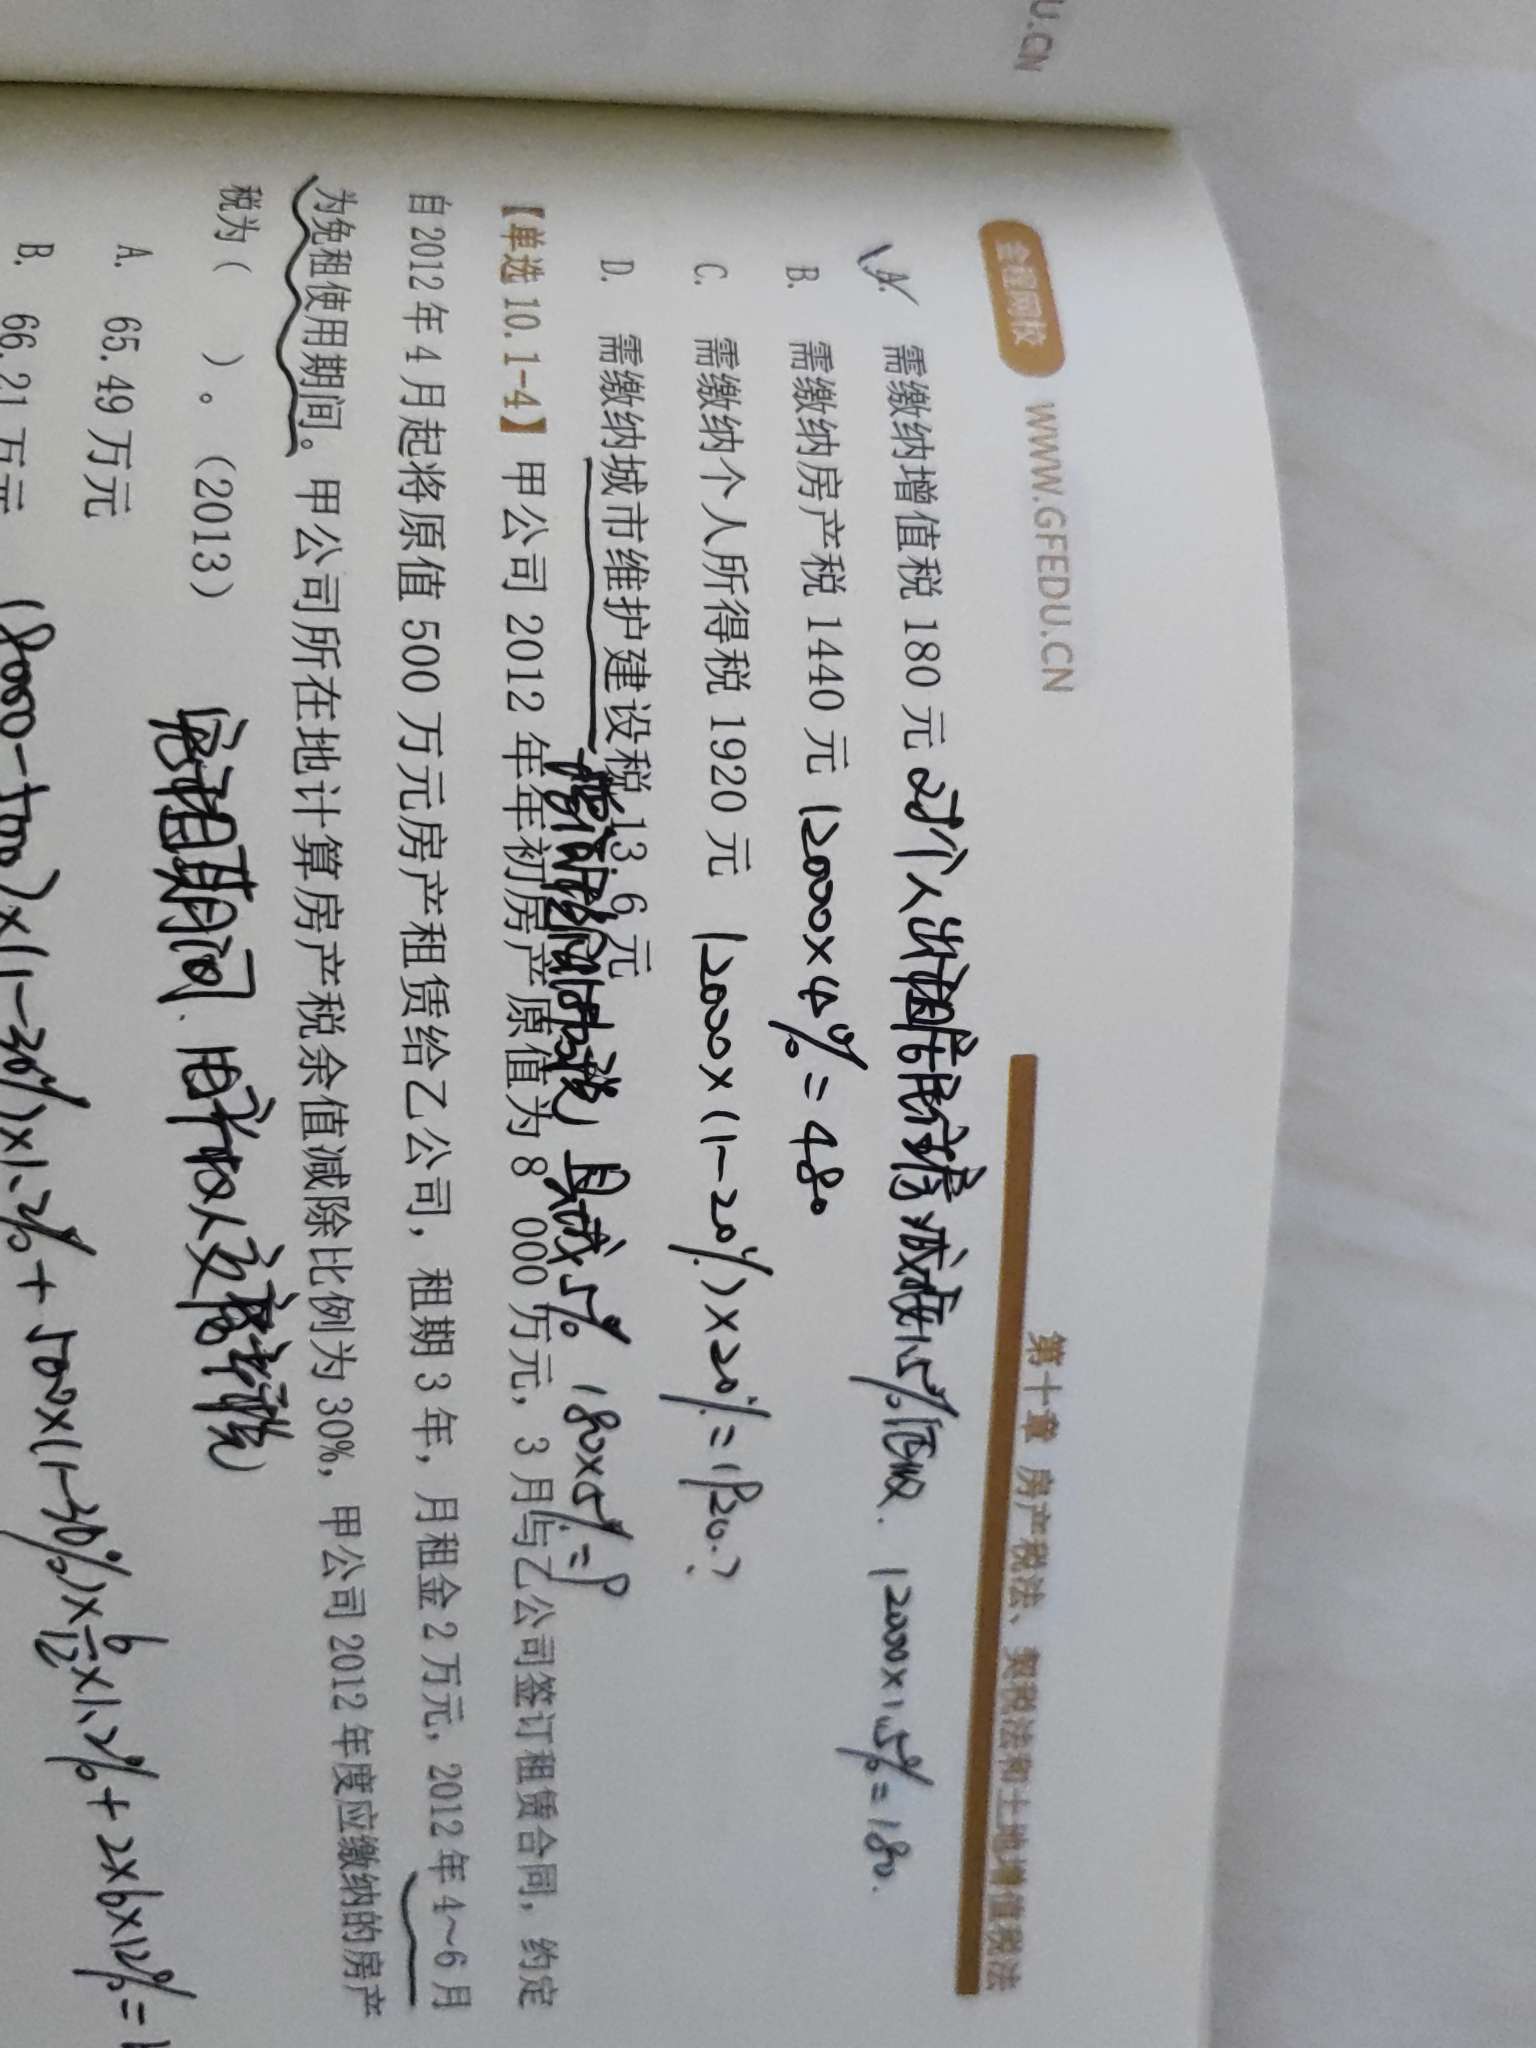 U.CN
金程网校 WWW.GFEDU.CN 第十章 房产税法、契税法和土地增值税法
A. 需缴纳增值税 180 元 对个人出租住房减按1.5%征收. 12000×1.5%=180.
B. 需缴纳房产税 1440 元 12000×4%=480
C. 需缴纳个人所得税 1920 元 12000×(1-20%)×20%=1920.?
D. 需缴纳城市维护建设税 13.6 元
且减 5% 180×5%=9
【单选 10.1-4】甲公司 2012 年年初房产原值为 8 000 万元，3 月与乙公司签订租赁合同，约定
自 2012 年 4 月起将原值 500 万元房产租赁给乙公司，租期 3 年，月租金 2 万元，2012 年 4~6 月
为免租使用期间。甲公司所在地计算房产税余值减除比例为 30%，甲公司 2012 年度应缴纳的房产
税为（ ）。（2013） 免租期间、由产权人交房产税
A. 65.49 万元
B. 66.21 万元 (8000-500)×(1-30%)×1.2%+500×(1-30%)×6/12×1.2%+2×6×12%=